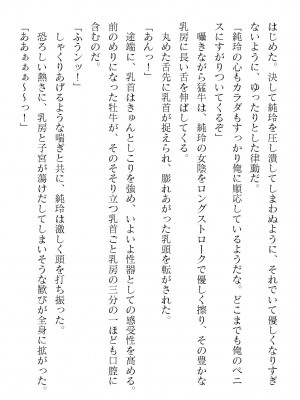 はじめた。決して純玲を圧し潰してしまわぬように、それでいて優しくなりすぎ
ないように、ゆったりとした律動だ。
「純玲の心もカラダもすっかり俺に順応しているようだな。どこまでも俺のペニ
スにすがりついてくるぞ」
囁きながら猛牛は、純玲の女陰をロングストロークで優しく擦り、その豊かな
乳房に長い舌を伸ばしてくる。
「あんっ！」
丸めた舌先に乳首が捉えられ、膨れあがった乳頭を転がされた。
途端に、乳首はきゅんとしこりを強め、いよいよ性器としての感受性を高める。
前のめりになった牡牛が、そのそそり立つ乳首ごと乳房の三分の一ほども口腔
に含むのだ。
「ふうンッ！」
しゃくりあげるような喘ぎと共に、純玲は激しく頭を打ち振った。
恐ろしい熱さに、乳房と子宮が蕩けだしてしまいそうな歓びが全身に拡がった。
「ああぁぁぁ～～っ！」